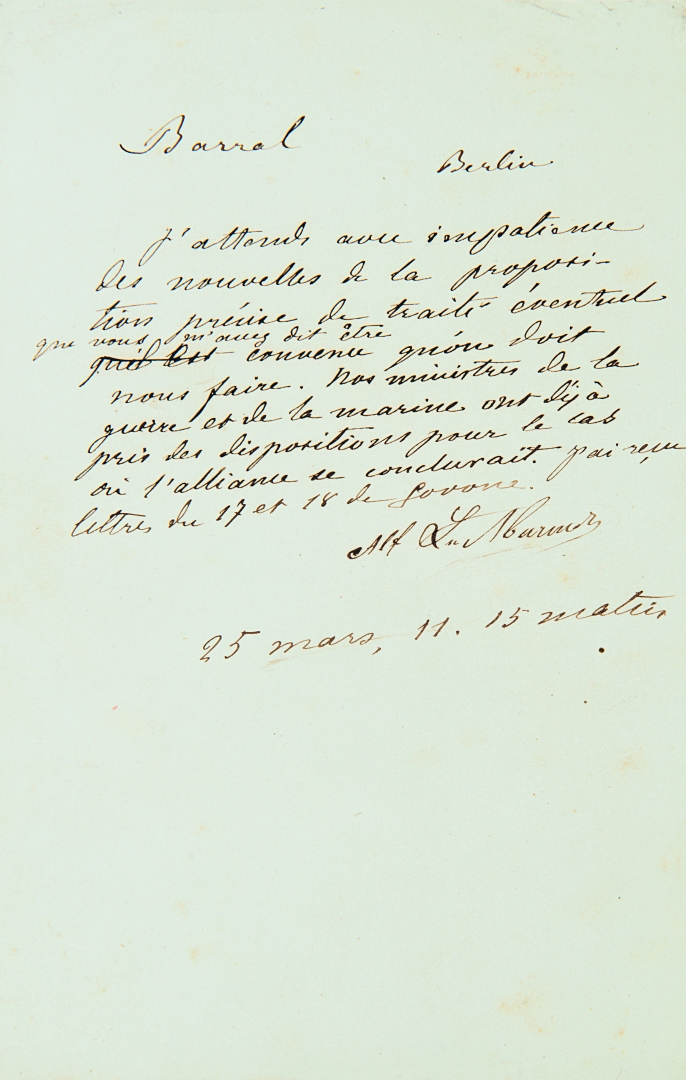 Barral
Berlin
J'attends avec impatience
des nouvelles de la proposi-
tion précise de traité éventuel
que vous m'avez dit être
qu'il est convenu qu'on doit
nous faire. Nos ministres de la
guerre et de la marine ont déjà
pris des dispositions pour le cas
où l'alliance se conclurait. J'ai reçu
lettres du 17 et 18 de Govone.
Alf La Marmora
25 mars, 11. 15 matin